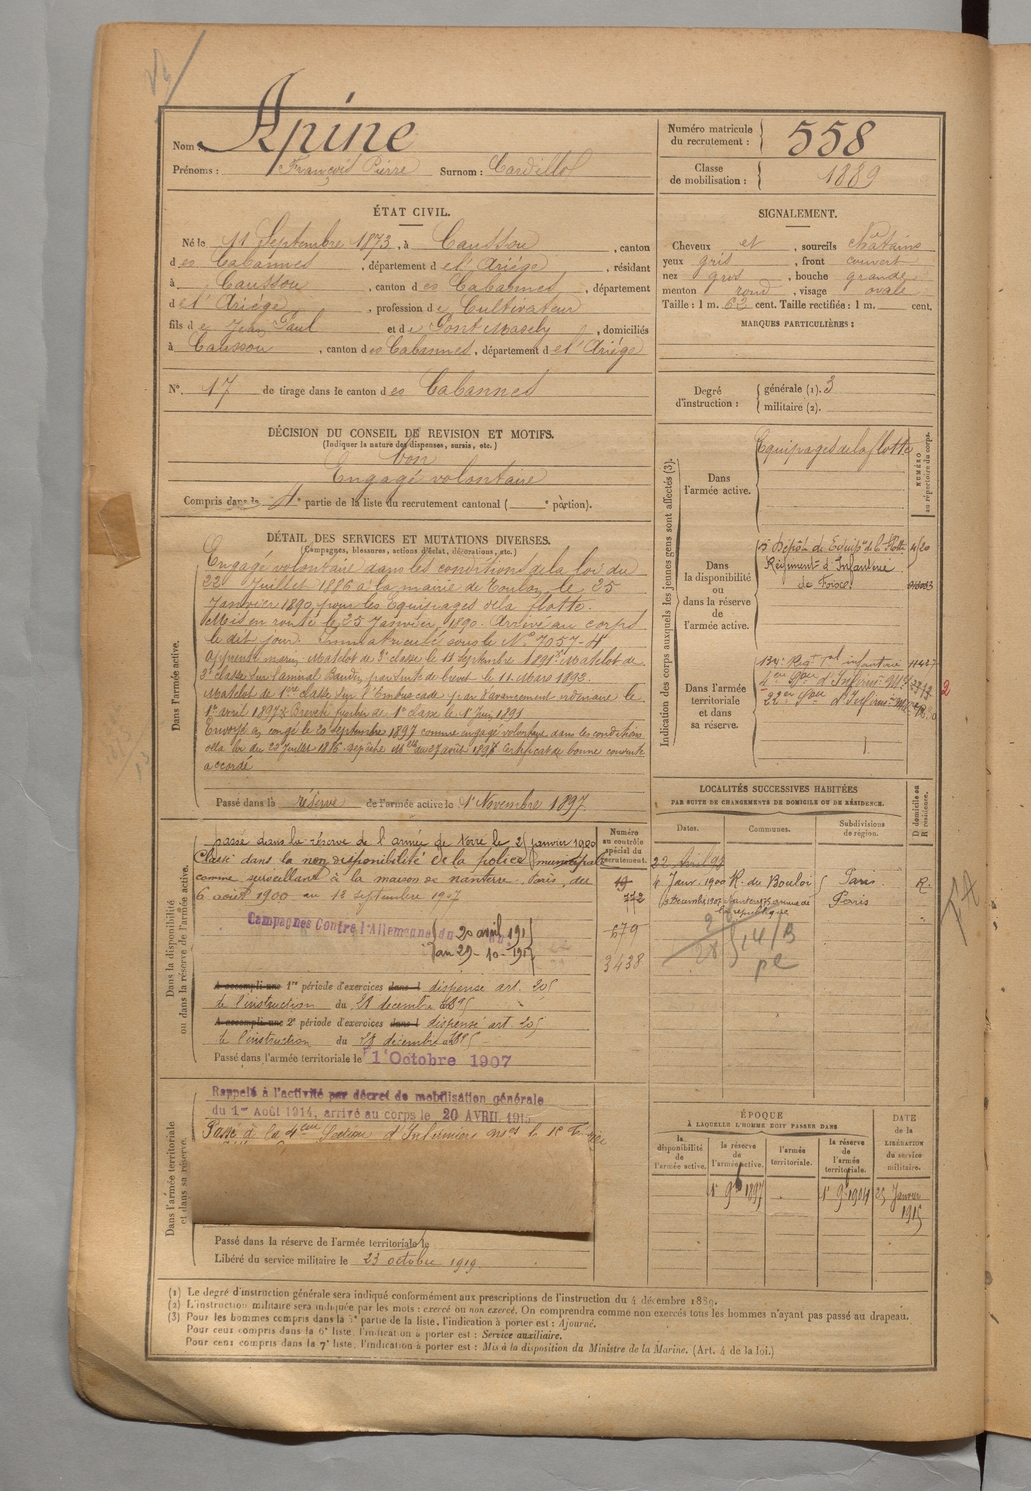 Nom : Apine
Prénoms : François Pierre Surnom : Cardillol
Numéro matricule du recrutement : 558
Classe de mobilisation : 1889
ÉTAT CIVIL.
Né le 11 Septembre 1873, à Caussou, canton
des Cabannes, département de l'Ariége, résidant
à Caussou, canton des Cabannes, département
de l'Ariége, profession de Cultivateur
fils de Jean Paul et de Pont Masely, domiciliés
à Caussou, canton des Cabannes, département de l'Ariége
N° 17 de tirage dans le canton des Cabannes
SIGNALEMENT.
Cheveux et, sourcils châtains
yeux gris, front couvert
nez gros, bouche grande
menton rond, visage ovale
Taille : 1 m. 62 cent. Taille rectifiée : 1 m. cent.
MARQUES PARTICULIÈRES :
Degré d'instruction : générale (1). 3
militaire (2).
DÉCISION DU CONSEIL DE REVISION ET MOTIFS.
(Indiquer la nature des dispenses, sursis, etc.)
bon
Engagé volontaire
Compris dans la 4e partie de la liste du recrutement cantonal ( e portion).
DÉTAIL DES SERVICES ET MUTATIONS DIVERSES.
(Campagnes, blessures, actions d'éclat, décorations, etc.)
Dans l'armée active.
Engagé volontaire dans les conditions de la loi du
22 Juillet 1886 à la mairie de Toulon le 25
Janvier 1890, pour les Equipages de la flotte.
Mis en route le 25 Janvier 1890. Arrivé au corps
le dit jour. Immatriculé sous le N° 7057-4
Apprenti marin, Matelot de 3e classe le 11 Septembre 1891. Matelot de
3e classe sur l'amiral Baudin, le 11 Mars 1893.
Matelot de 1ère classe sur l'Embuscade par d'avancement ordinaire le
1er avril 1897. Breveté de 1e classe le 1er Juin 1891
Envoyé en congé le 20 septembre 1897 comme engagé volontaire dans les conditions
de la loi du 22 Juillet 1886. du 27 août 1897 Certificat de bonne conduite
accordé
Passé dans la réserve de l'armée active le 1er Novembre 1897.
Indication des corps auxquels les jeunes gens sont affectés (3).
NUMÉRO au répertoire du corps.
Dans l'armée active.
Equipages de la flotte
Dans la disponibilité ou dans la réserve de l'armée active.
5e Dépôt des Equip. de la flotte
Régiment d'Infanterie
de Foix
Dans l'armée territoriale et dans sa réserve.
LOCALITÉS SUCCESSIVES HABITÉES
PAR SUITE DE CHANGEMENTS DE DOMICILE OU DE RÉSIDENCE.
Dates. Communes. Subdivisions de région. D domicile ou R résidence.
22 Avril 98
4 Janv. 1900 R. du Bouloi Paris R.
Paris
14/B
Dans la disponibilité ou dans la réserve de l'armée active.
Numéro au contrôle spécial du recrutement.
772
679
3438
passé dans la réserve de l'armée de terre le 21 janvier 1900
Classé dans la non disponibilité de la police municipale
comme surveillant à la maison de Nanterre. Paris, du
6 août 1900 au 12 septembre 1907
Campagnes Contre l'Allemagne du 20 avril 191
au 29-10-191
A accompli une 1re période d'exercices dans l dispensé art. 205
de l'instruction du 28 décembre 1895
A accompli une 2e période d'exercices dans l dispensé art 205
de l'instruction du 28 décembre 1895
Passé dans l'armée territoriale le 1er Octobre 1907
Dans l'armée territoriale et dans sa réserve.
Rappelé à l'activité par décret de mobilisation générale
du 1er Août 1914, arrivé au corps le 20 AVRIL 1915
Passé à la 4eme Section d'Infirmiers
Passé dans la réserve de l'armée territoriale le
Libéré du service militaire le 23 octobre 1919.
ÉPOQUE
À LAQUELLE L'HOMME DOIT PASSER DANS
la disponibilité de l'armée active. la réserve de l'armée active. l'armée territoriale. la réserve de l'armée territoriale.
DATE de la LIBÉRATION du service militaire.
1er 9bre 1897 1er 9bre 1904 25 Janvier 1915
(1) Le degré d'instruction générale sera indiqué conformément aux prescriptions de l'instruction du 4 décembre 1889.
(2) L'instruction militaire sera indiquée par les mots : exercé ou non exercé. On comprendra comme non exercés tous les hommes n'ayant pas passé au drapeau.
(3) Pour les hommes compris dans la 5e partie de la liste, l'indication à porter est : Ajourné.
Pour ceux compris dans la 6e liste, l'indication à porter est : Service auxiliaire.
Pour ceux compris dans la 7e liste, l'indication à porter est : Mis à la disposition du Ministre de la Marine. (Art. 4 de la loi.)